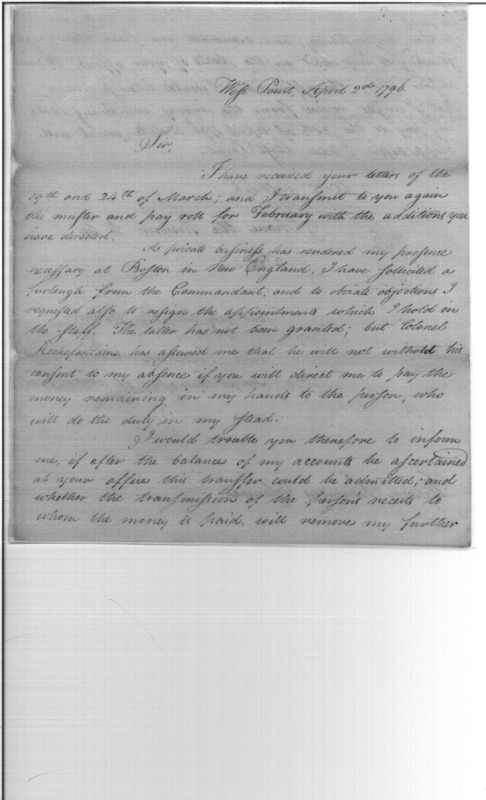 West Point, April 2d 1796.
Sir,
I have received your letters of the
19th and 24th of March; and I transmit to you again
the muster and pay roll for February with the additions you
have directed.
As private business has rendered my presence
necessary at Boston in New England, I have sollicited a
furlough from the Commandant, and to obviate objections I
requested also to resign the appointment which I hold in
the staff. The latter has not been granted; but Colonel
Rochefontaine has assured me that he will not withold his
consent to my absence if you will direct me to pay the
money remaining in my hands to the person, who
will do the duty in my stead.
I would trouble you therefore to inform
me, if after the balance of my accounts be ascertained
at your office this transfer could be admitted; and
whether the transmission of the person's receits to
whom the money is paid, will remove my further